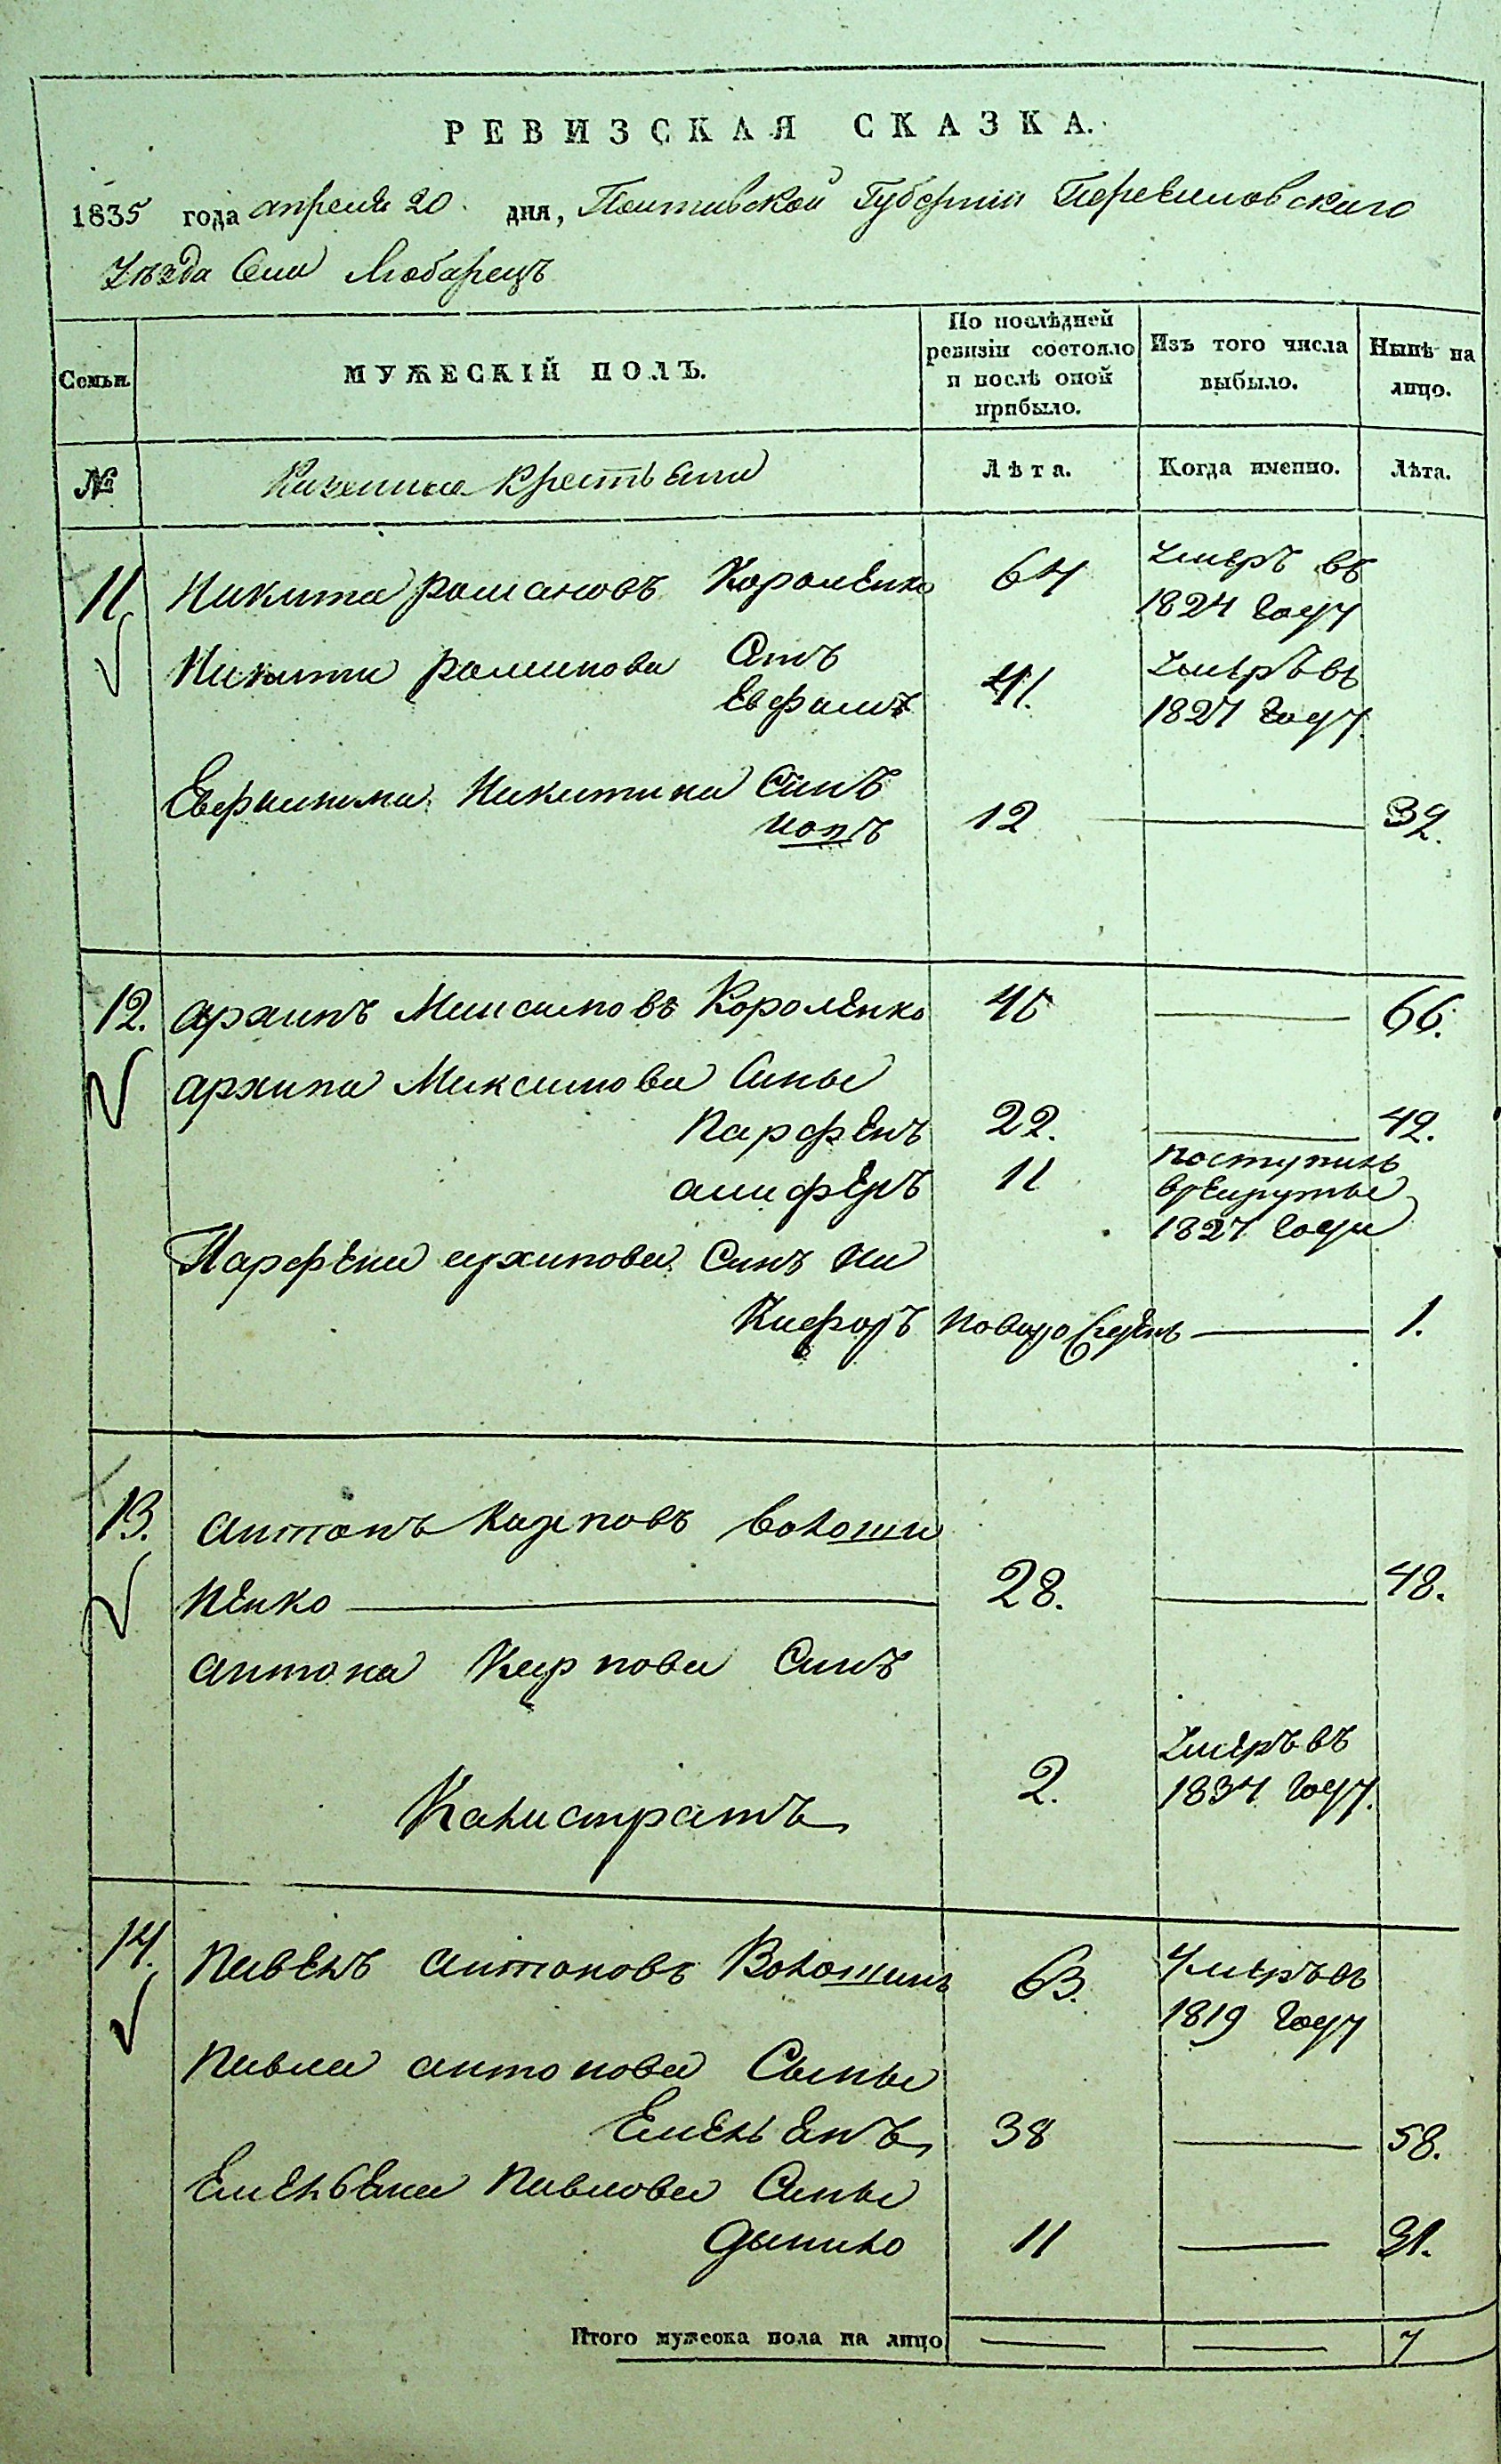 РЕВИЗСКАЯ СКАЗКА.
1835 года апреля 20 дня, Полтавской Губернии Переяславского
Уѣзда Села Любарецъ
Семьи. МУЖЕСКІЙ ПОЛЪ. По послѣдней ревизіи состояло и послѣ оной прибыло. Изъ того числа выбыло. Нынѣ на лицо.
№ Казенные крестьяни Лѣта. Когда именно. Лѣта.
11. Никита романовъ Короленко 64 Умеръ въ
1824 году
Никиты романова Сынъ
Ефримъ 41. Умеръ въ
1827 году.
Никитина Синъ
12 32.
12. архипъ Максимовъ Короленко 45 66.
архипа Максимова Сины
Парфенъ 22. 42.
алиферъ 11 поступилъ
врекруты
1827 года
Парфена архипова Синъ Ни
Кифоръ новорожденъ 1.
13. антонъ карповъ волоши
ненко 28. 48.
антона Карпова Синъ
Калистратъ 2. Умеръ въ
1834 году.
14. Павелъ антоновъ Волошинъ 63. Умеръ въ
1819 году
Павла антонова Сыны
Емельянъ 38 58.
Емельяна Павлова Сины
данило 11 31.
Итого мужеска пола на лицо 7